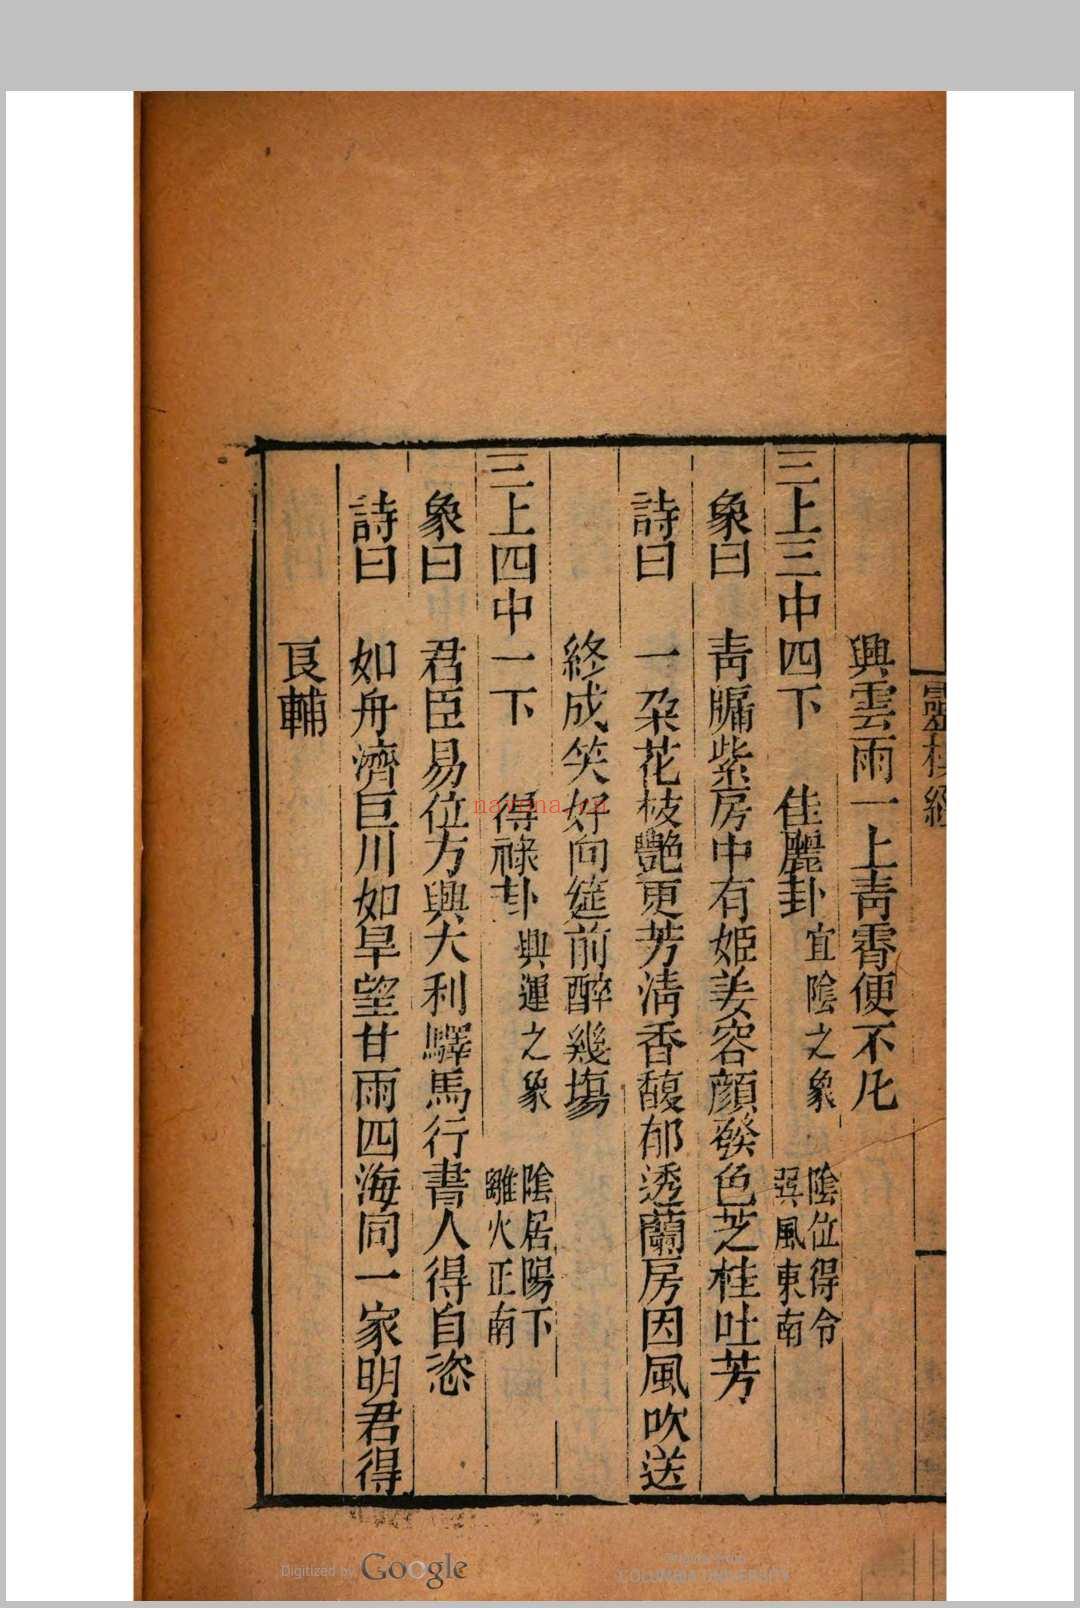 靈棋經
興雲雨一上青霄便不凡
三上三中四下 佳麗卦 宜陰之象 陰位得令 巽風東南
象曰 青牖紫房中有姬姜容顏發色芝桂吐芳
詩曰 一朶花枝艷更芳清香馥郁透蘭房因風吹送
終成笑好向筵前醉幾塲
三上四中一下 得祿卦 興運之象 陰居陽下 離火正南
象曰 君臣易位方興大利驛馬行書人得自恣
詩曰 如舟濟巨川如旱望甘雨四海同一家明君得
良輔
nayona.cn
Digitized by Google
Original from
COLUMBIA UNIVERSITY